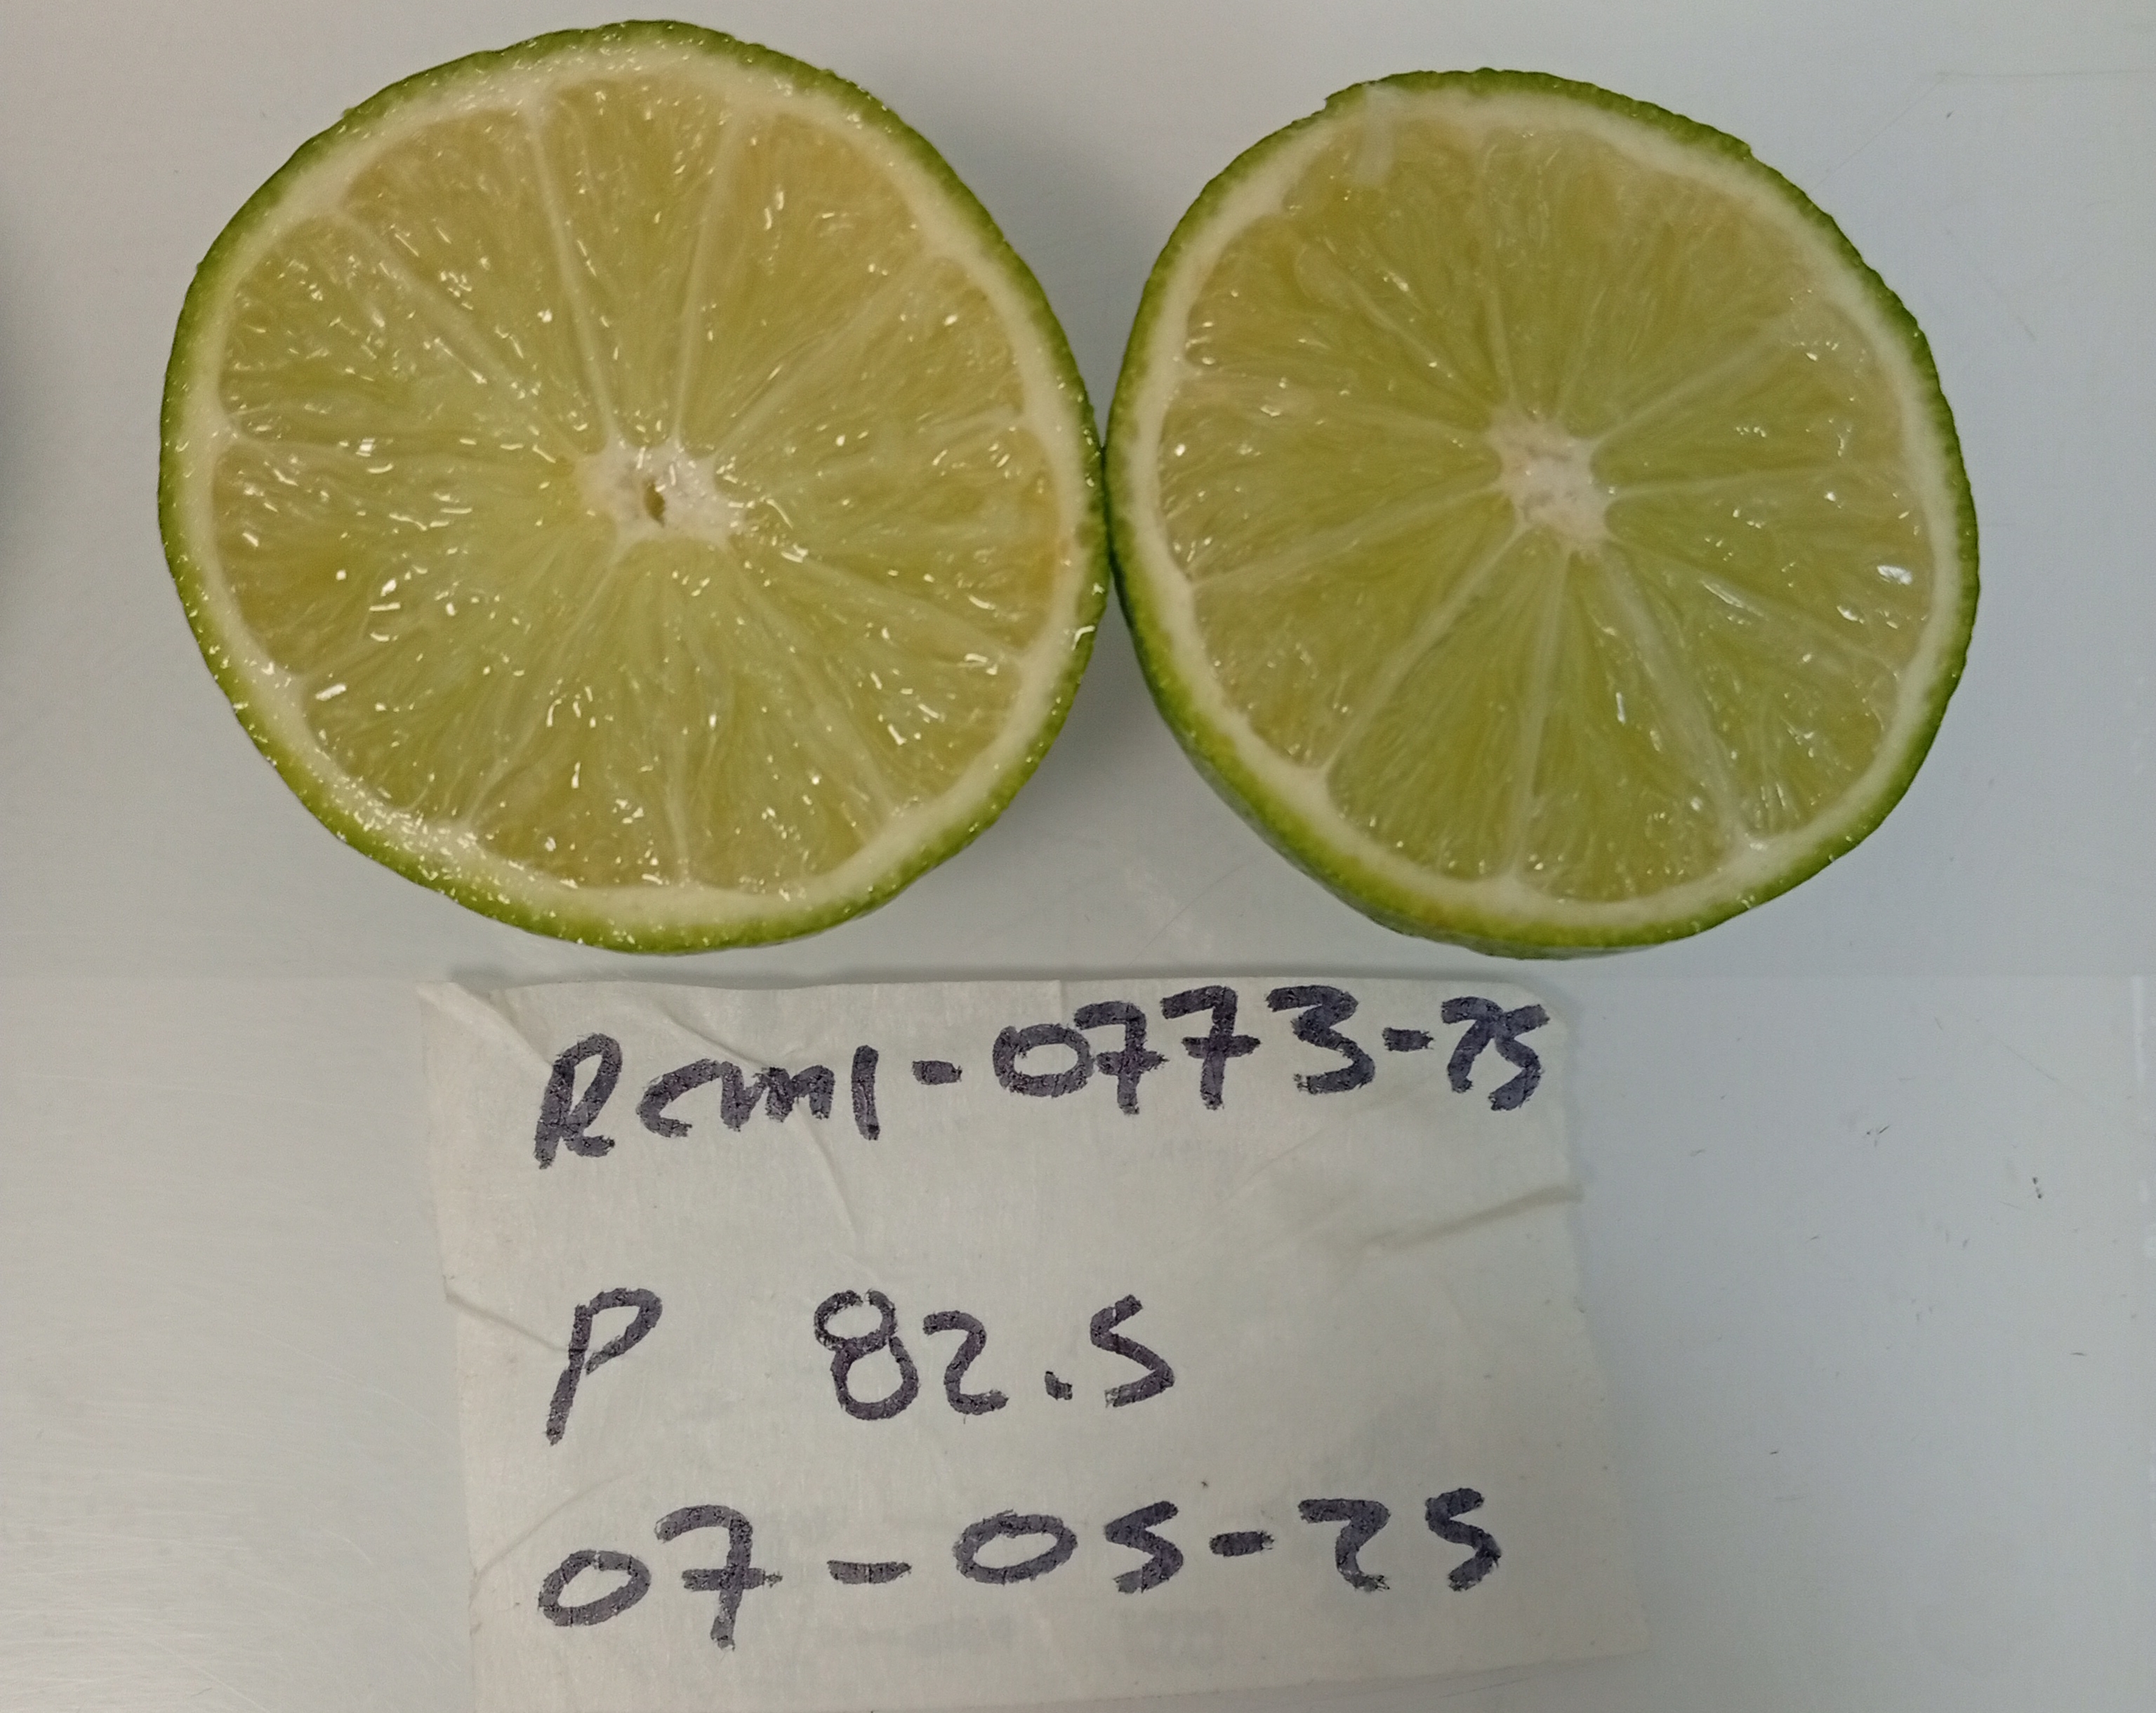 Rcml-0773-25
P 82.5
07-05-25